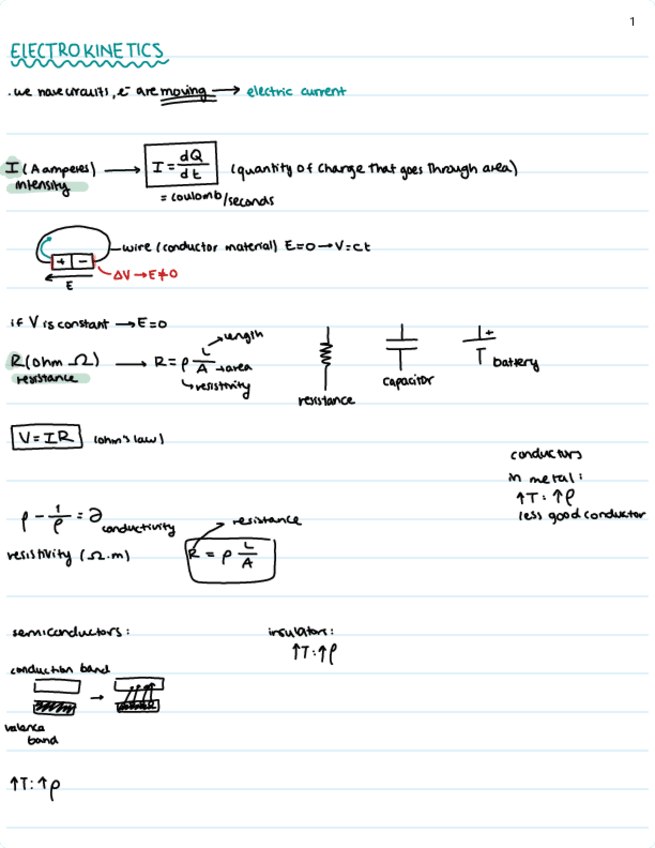 1
ELECTROKINETICS
. we have circuits, e⁻ are moving → electric current
I (A amperes) → I = dQ/dt (quantity of charge that goes through area)
intensity
= coulomb/seconds
wire (conductor material) E=0 → V=ct
+ -
ΔV → E≠0
E
if V is constant → E=0
length
R (ohm Ω) → R = ρ L/A → area
resistance
resistivity
resistance
capacitor
+
battery
V = IR (ohm's law)
conductors
in metal:
↑T: ↑ρ
less good conductor
ρ - 1/ρ = ∂ conductivity
resistance
resistivity (Ω.m)
R = ρ L/A
semiconductors:
insulators:
↑T: ↑ρ
conduction band
→
valence
band
↑T: ↑ρ